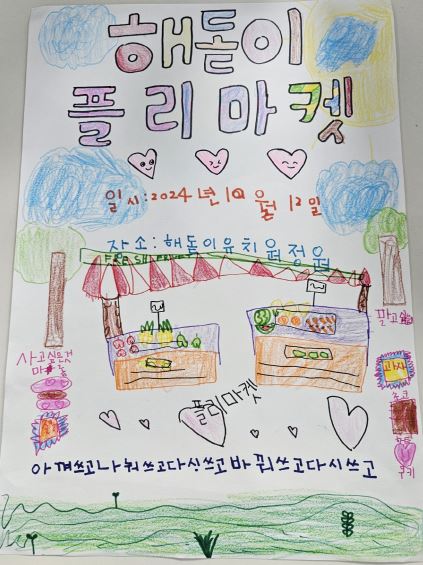 해돋이
플리마켓
일시:2024년 10월 12일
장소:해돋이유치원정원
FRESH
사고싶은것
팔고싶
과자
초코
쿠키
플리마켓
아껴쓰고나눠쓰고다신쓰고바꿔쓰고다시쓰고